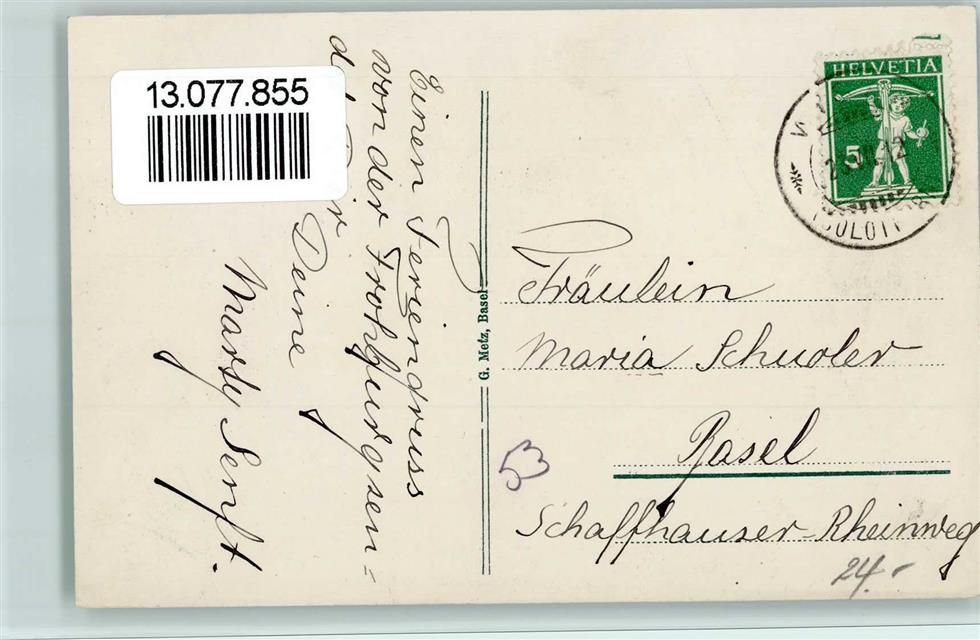 13.077.855
Einen Feriengruss
von der Frohburg sen=
det Dir
Deine
Marty Senft.
G. Metz, Basel
HELVETIA
5
Fräulein
Maria Schuoler
Basel
Schaffhauser-Rheinweg
53
24.-